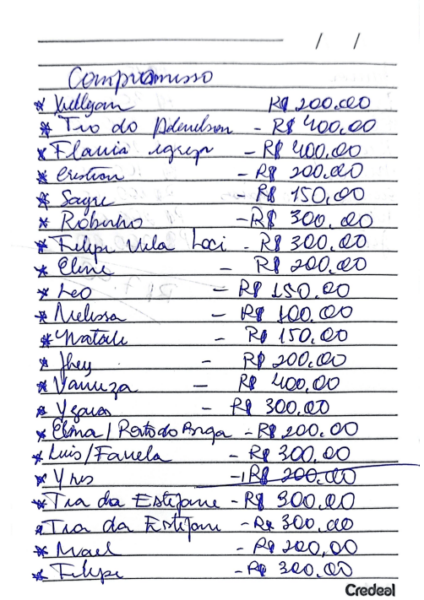 / /
Compromisso
* Kellyan R$ 200,00
* Tio do Adenelson - R$ 400,00
* Flavia - R$ 400,00
* Cristian - R$ 200,00
* - R$ 150,00
* Robinho - R$ 300,00
* Filipe Vila Loci - R$ 300,00
* Eline - R$ 200,00
* Leo - R$ 150,00
* Melissa - R$ 100,00
* Natali - R$ 150,00
* Jhey - R$ 200,00
* Vanuza - R$ 400,00
* Ygara - R$ 300,00
* Elina / - R$ 200,00
* Luis / Favela - R$ 300,00
* - R$ 200,00
* Tia da Estefane - R$ 300,00
* Tia da Estefani - R$ 300,00
* - R$ 200,00
* Filipe - R$ 300,00
Credeal